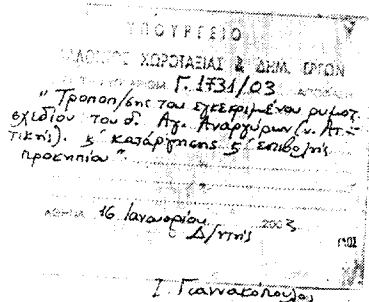 ΥΠΟΥΡΓΕΙΟ
ΧΩΡΟΤΑΞΙΑΣ & ΔΗΜ. ΕΡΓΩΝ
Γ. 1731/03
" Τροποπ/σης του εγκεκριμένου ρυμοτ.
σχεδίου του δ. Αγ. Αναργύρων (ν. Ατ-
τικής). ϗ' κατάργησης ϗ' επιβολής
προκηπίου".
16 Ιανουαρίου 2003
Ο Δ/ντής
Ι. Γιαννακόπουλος